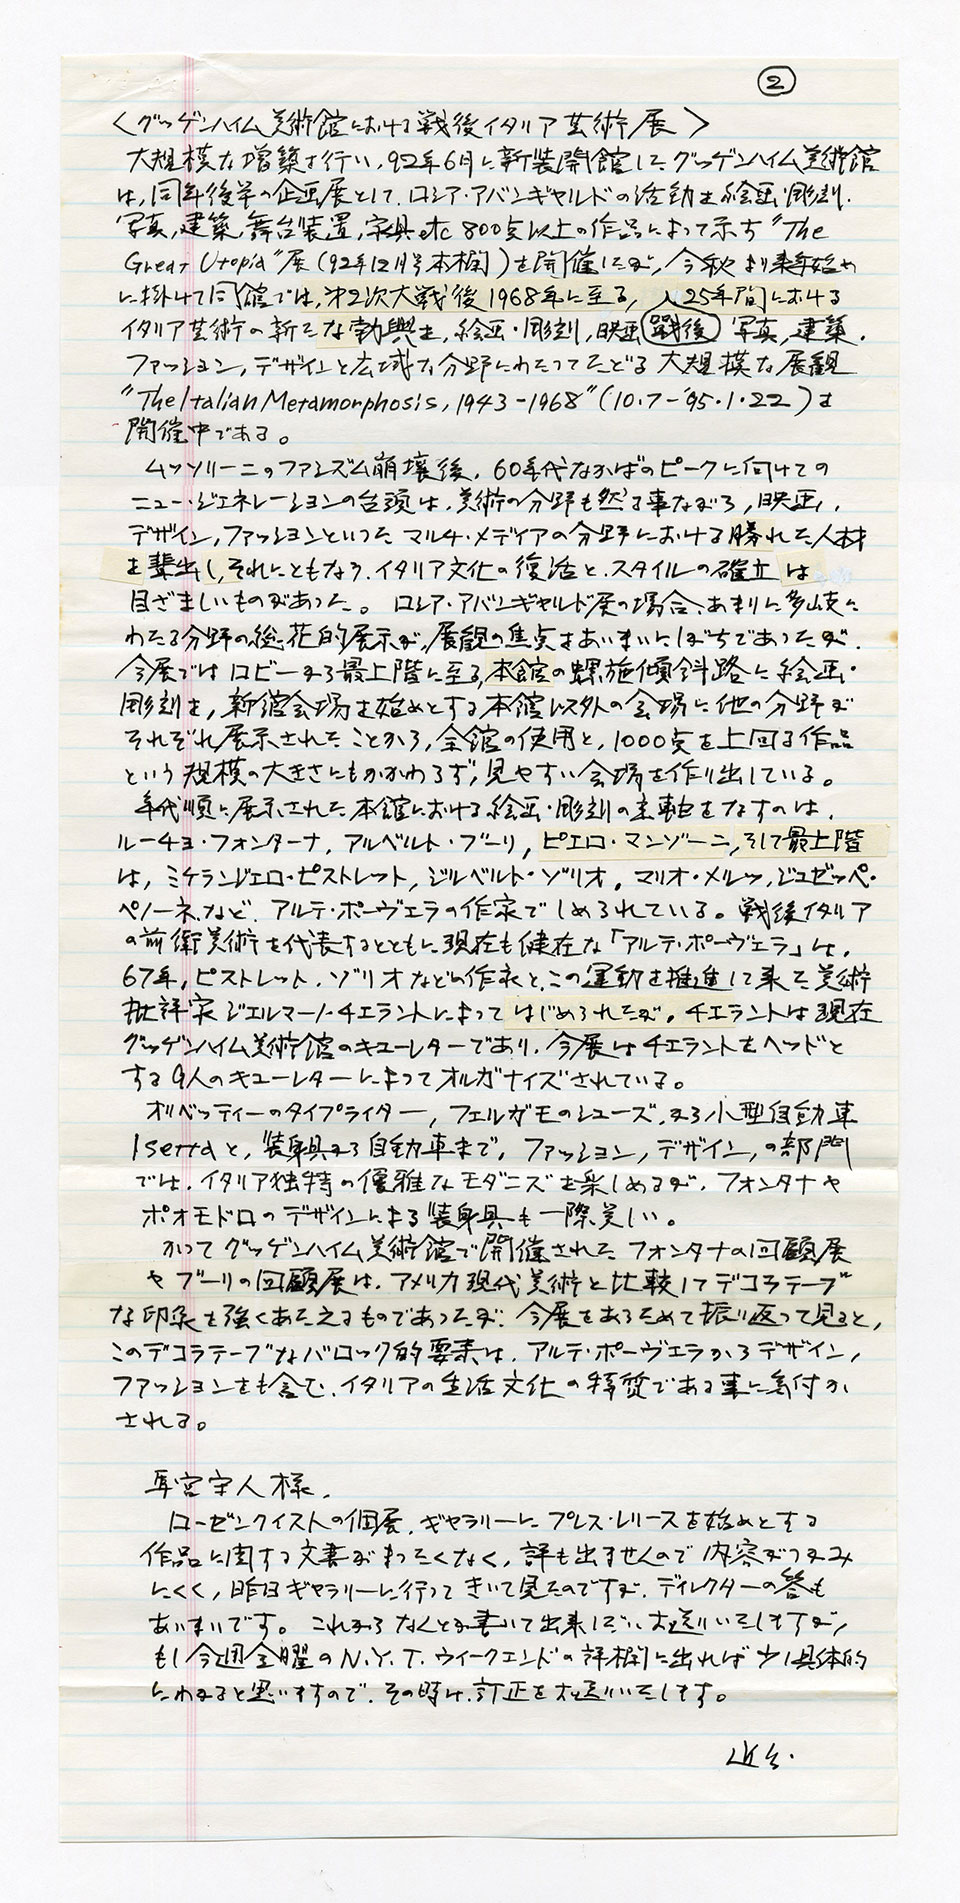 ②
〈グッゲンハイム美術館における戦後イタリア芸術展〉
大規模な増築を行い、92年6月に新装開館した、グッゲンハイム美術館
は、同年後半の企画展として、ロシア・アバンギャルドの活動を絵画・彫刻、
写真、建築、舞台装置、家具etc 800点以上の作品によって示す"The
Great Utopia"展(92年12月号本欄)を開催したが、今秋より来年始め
に掛けて同館では、第2次大戦後1968年に至る、25年間における
イタリア芸術の新たな勃興を、絵画・彫刻、映画 戦後 写真、建築、
ファッション、デザインと広域な分野にわたってたどる大規模な展観
"The Italian Metamorphosis, 1943-1968"(10.7-'95.1.22)を
開催中である。
ムッソリーニのファシズム崩壊後、60年代なかばのピークに向けての
ニュー・ジェネレーションの台頭は、美術の分野も然る事ながら、映画、
デザイン、ファッションといった マルチ・メディアの分野における勝れた人材
を輩出し、それにともなう、イタリア文化の復活と、スタイルの確立は
目ざましいものがあった。ロシア・アバンギャルド展の場合、あまりに多岐に
わたる分野の総花的展示が、展観の焦点をあいまいにしがちであったが
今展ではロビーから最上階に至る、本館の螺旋傾斜路に絵画・
彫刻を、新館会場を始めとする本館以外の会場に他の分野が
それぞれ展示されたことから、全館の使用と、1000点を上回る作品
という規模の大きさにもかかわらず、見やすい会場を作り出している。
年代順に展示された、本館における絵画・彫刻の主軸をなすのは、
ルーチョ・フォンターナ、アルベルト・ブーリ、ピエロ・マンゾーニ、そして最上階
は、ミケランジェロ・ピストレット、ジルベルト・ゾリオ、マリオ・メルツ、ジュゼッペ・
ペノーネなど、アルテ・ポーヴェラの作家でしめられている。戦後イタリア
の前衛美術を代表するとともに現在も健在な「アルテ・ポーヴェラ」は、
67年、ピストレット、ゾリオなどの作家と、この運動を推進して来た美術
批評家ジェルマーノ・チェラントによってはじめられたが、チェラントは現在
グッゲンハイム美術館のキューレターであり、今展はチェラントをヘッドと
する9人のキューレターによってオルガナイズされている。
オリベッティーのタイプライター、フェルガモのシューズ、から小型自動車
Isettaと、装身具から自動車まで、ファッション、デザイン、の部門
では、イタリア独特の優雅なモダニズムを楽しめるが、フォンタナや
ポオモドロのデザインによる装身具も一際美しい。
かつてグッゲンハイム美術館で開催されたフォンタナの回顧展
やブーリの回顧展は、アメリカ現代美術と比較してデコラテーブ
な印象を強くあたえるものであったが、今展をあらためて振り返って見ると、
このデコラテーブなバロック的要素は、アルテ・ポーヴェラからデザイン、
ファッションをも含む、イタリアの生活文化の特質である事に気付か
される。
宮守人様、
ローゼンクイストの個展、ギャラリーにプレス・レリースを始めとする
作品に関する文書がまったくなく、評も出ませんので内容がつかみ
にくく、昨日ギャラリーに行ってきいて見たのですが、ディレクターの答も
あいまいです。これからなんとか書いて出来しだいお送りいたしますが、
もし今週金曜のN.Y.T.ウイークエンドの評欄に出れば少し具体的
にわかると思いますので、その時は、訂正をお送りいたします。